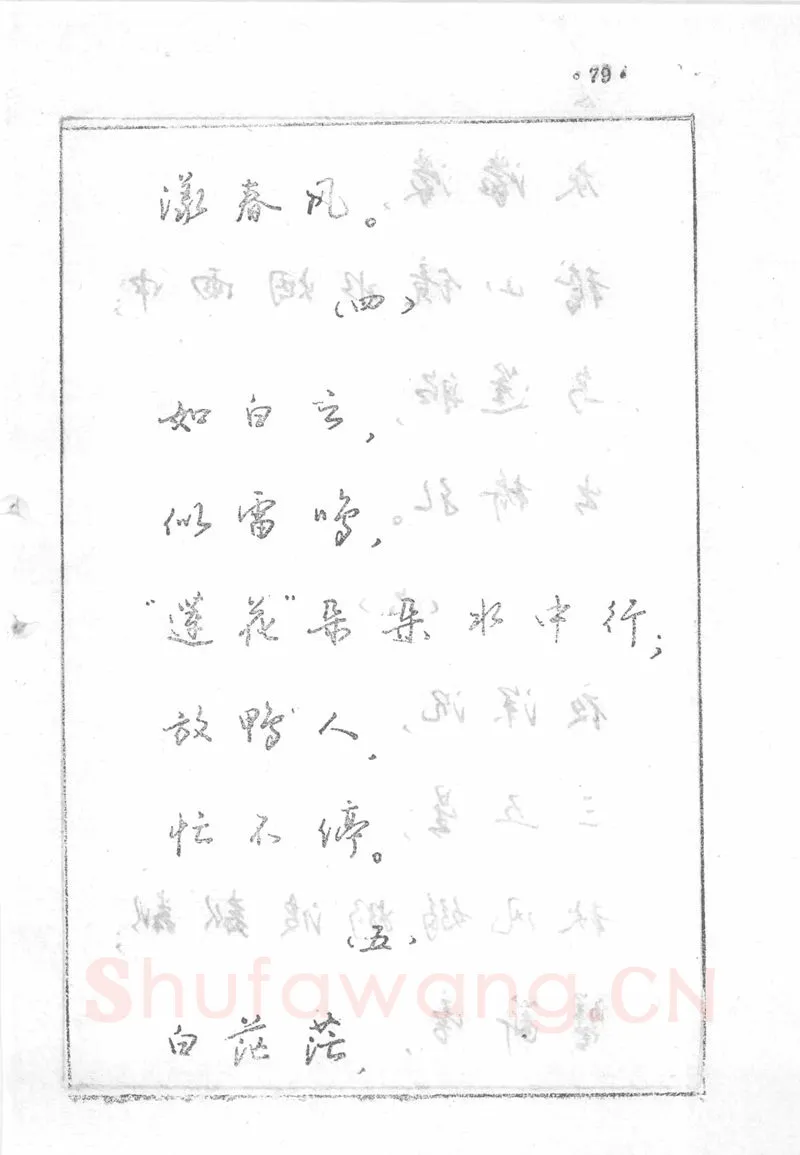 ·79·
漾春风。
（四）
如白云，
似雷鸣，
“莲花”朵朵水中行；
放鸭人，
忙不停。
（五）
白茫茫，
Shufawang.CN